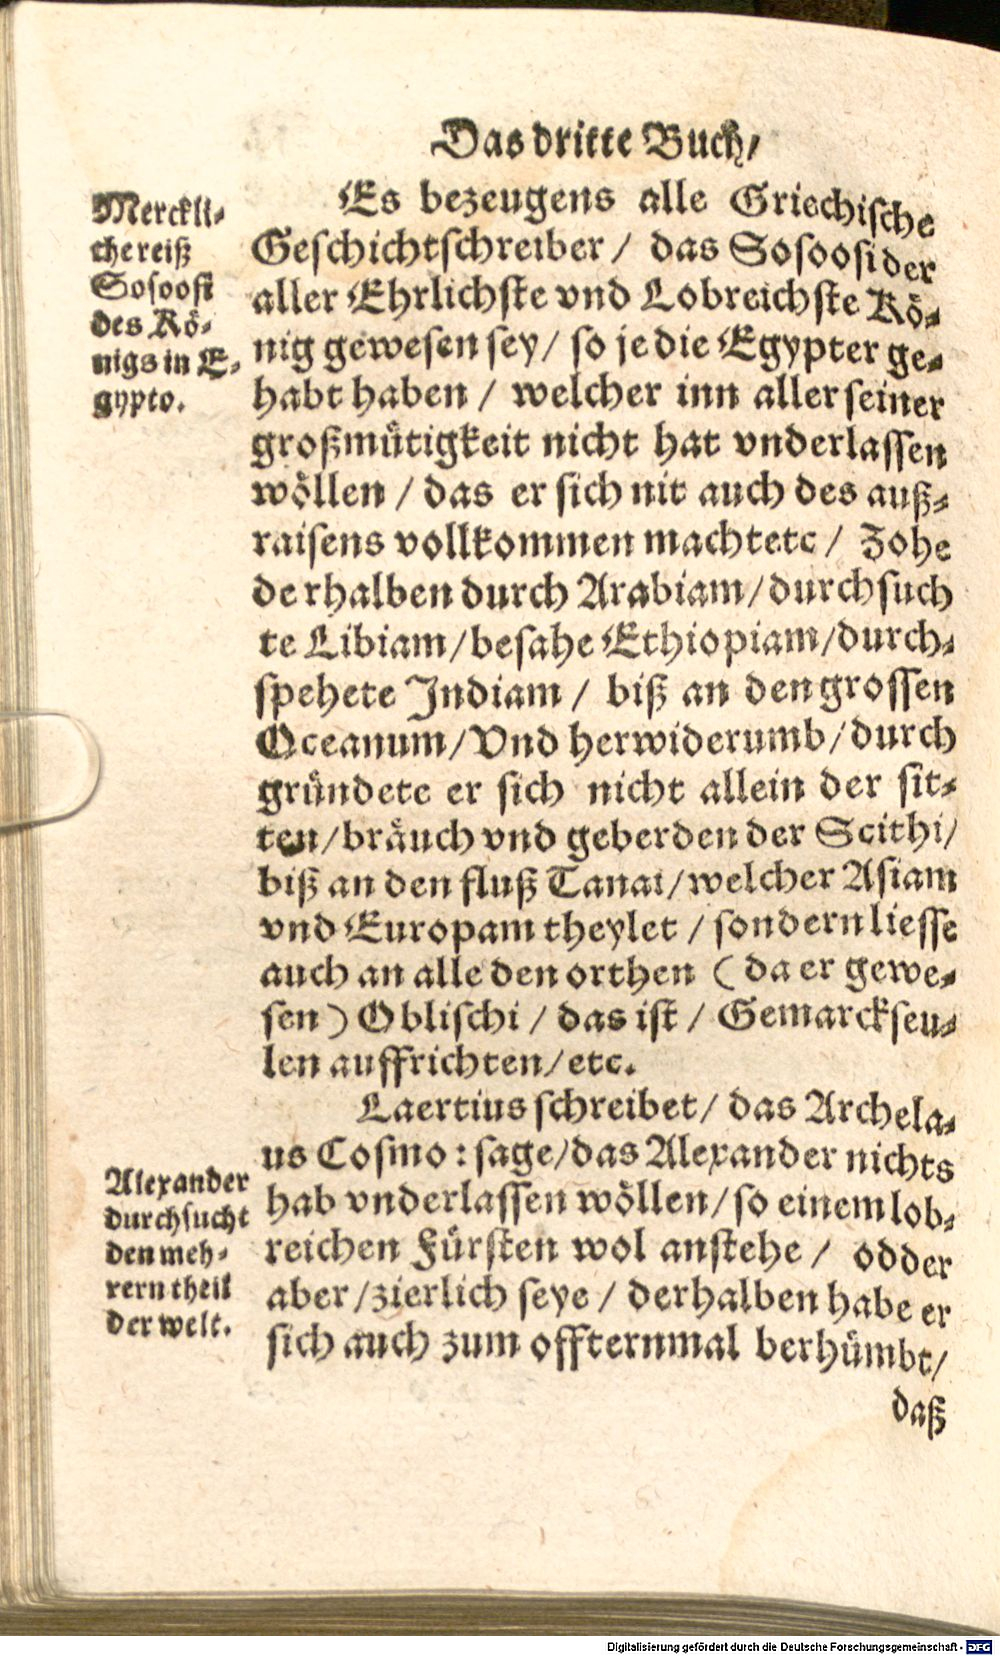 Das dritte Buch/
Merckli-
che reiß
Sosoosi
des Kö-
nigs in E-
gypto.
Es bezeugens alle Griechische
Geschichtschreiber / das Sosoosi der
aller Ehrlichste vnd Lobreichste Kö-
nig gewesen sey/ so je die Egypter ge-
habt haben / welcher inn aller seiner
großmütigkeit nicht hat vnderlassen
wöllen / das er sich nit auch des auß-
raisens vollkommen machtetc / Zohe
derhalben durch Arabiam/durchsuch
te Libiam/besahe Ethiopiam/durch-
spehete Indiam / biß an den grossen
Oceanum/Vnd herwiderumb/durch
gründete er sich nicht allein der sit-
ten/bräuch vnd geberden der Scithi/
biß an den fluß Tanai/welcher Asiam
vnd Europam theylet / sondern liesse
auch an alle den orthen ( da er gewe-
sen ) Oblischi / das ist / Gemarckseu-
len auffrichten/etc.
Laertius schreibet/ das Archela-
us Cosmo: sage/das Alexander nichts
hab vnderlassen wöllen/so einem lob-
reichen Fürsten wol anstehe / odder
aber/zierlich seye / derhalben habe er
sich auch zum offternmal berhümbt/
Alexander
durchsucht
den meh-
rern theil
der welt.
daß
Digitalisierung gefördert durch die Deutsche Forschungsgemeinschaft - DFG